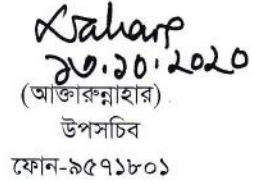 ১৩.১০.২০২০
(আক্তারুন্নাহার)
উপসচিব
ফোন-৯৫৭১৮০১